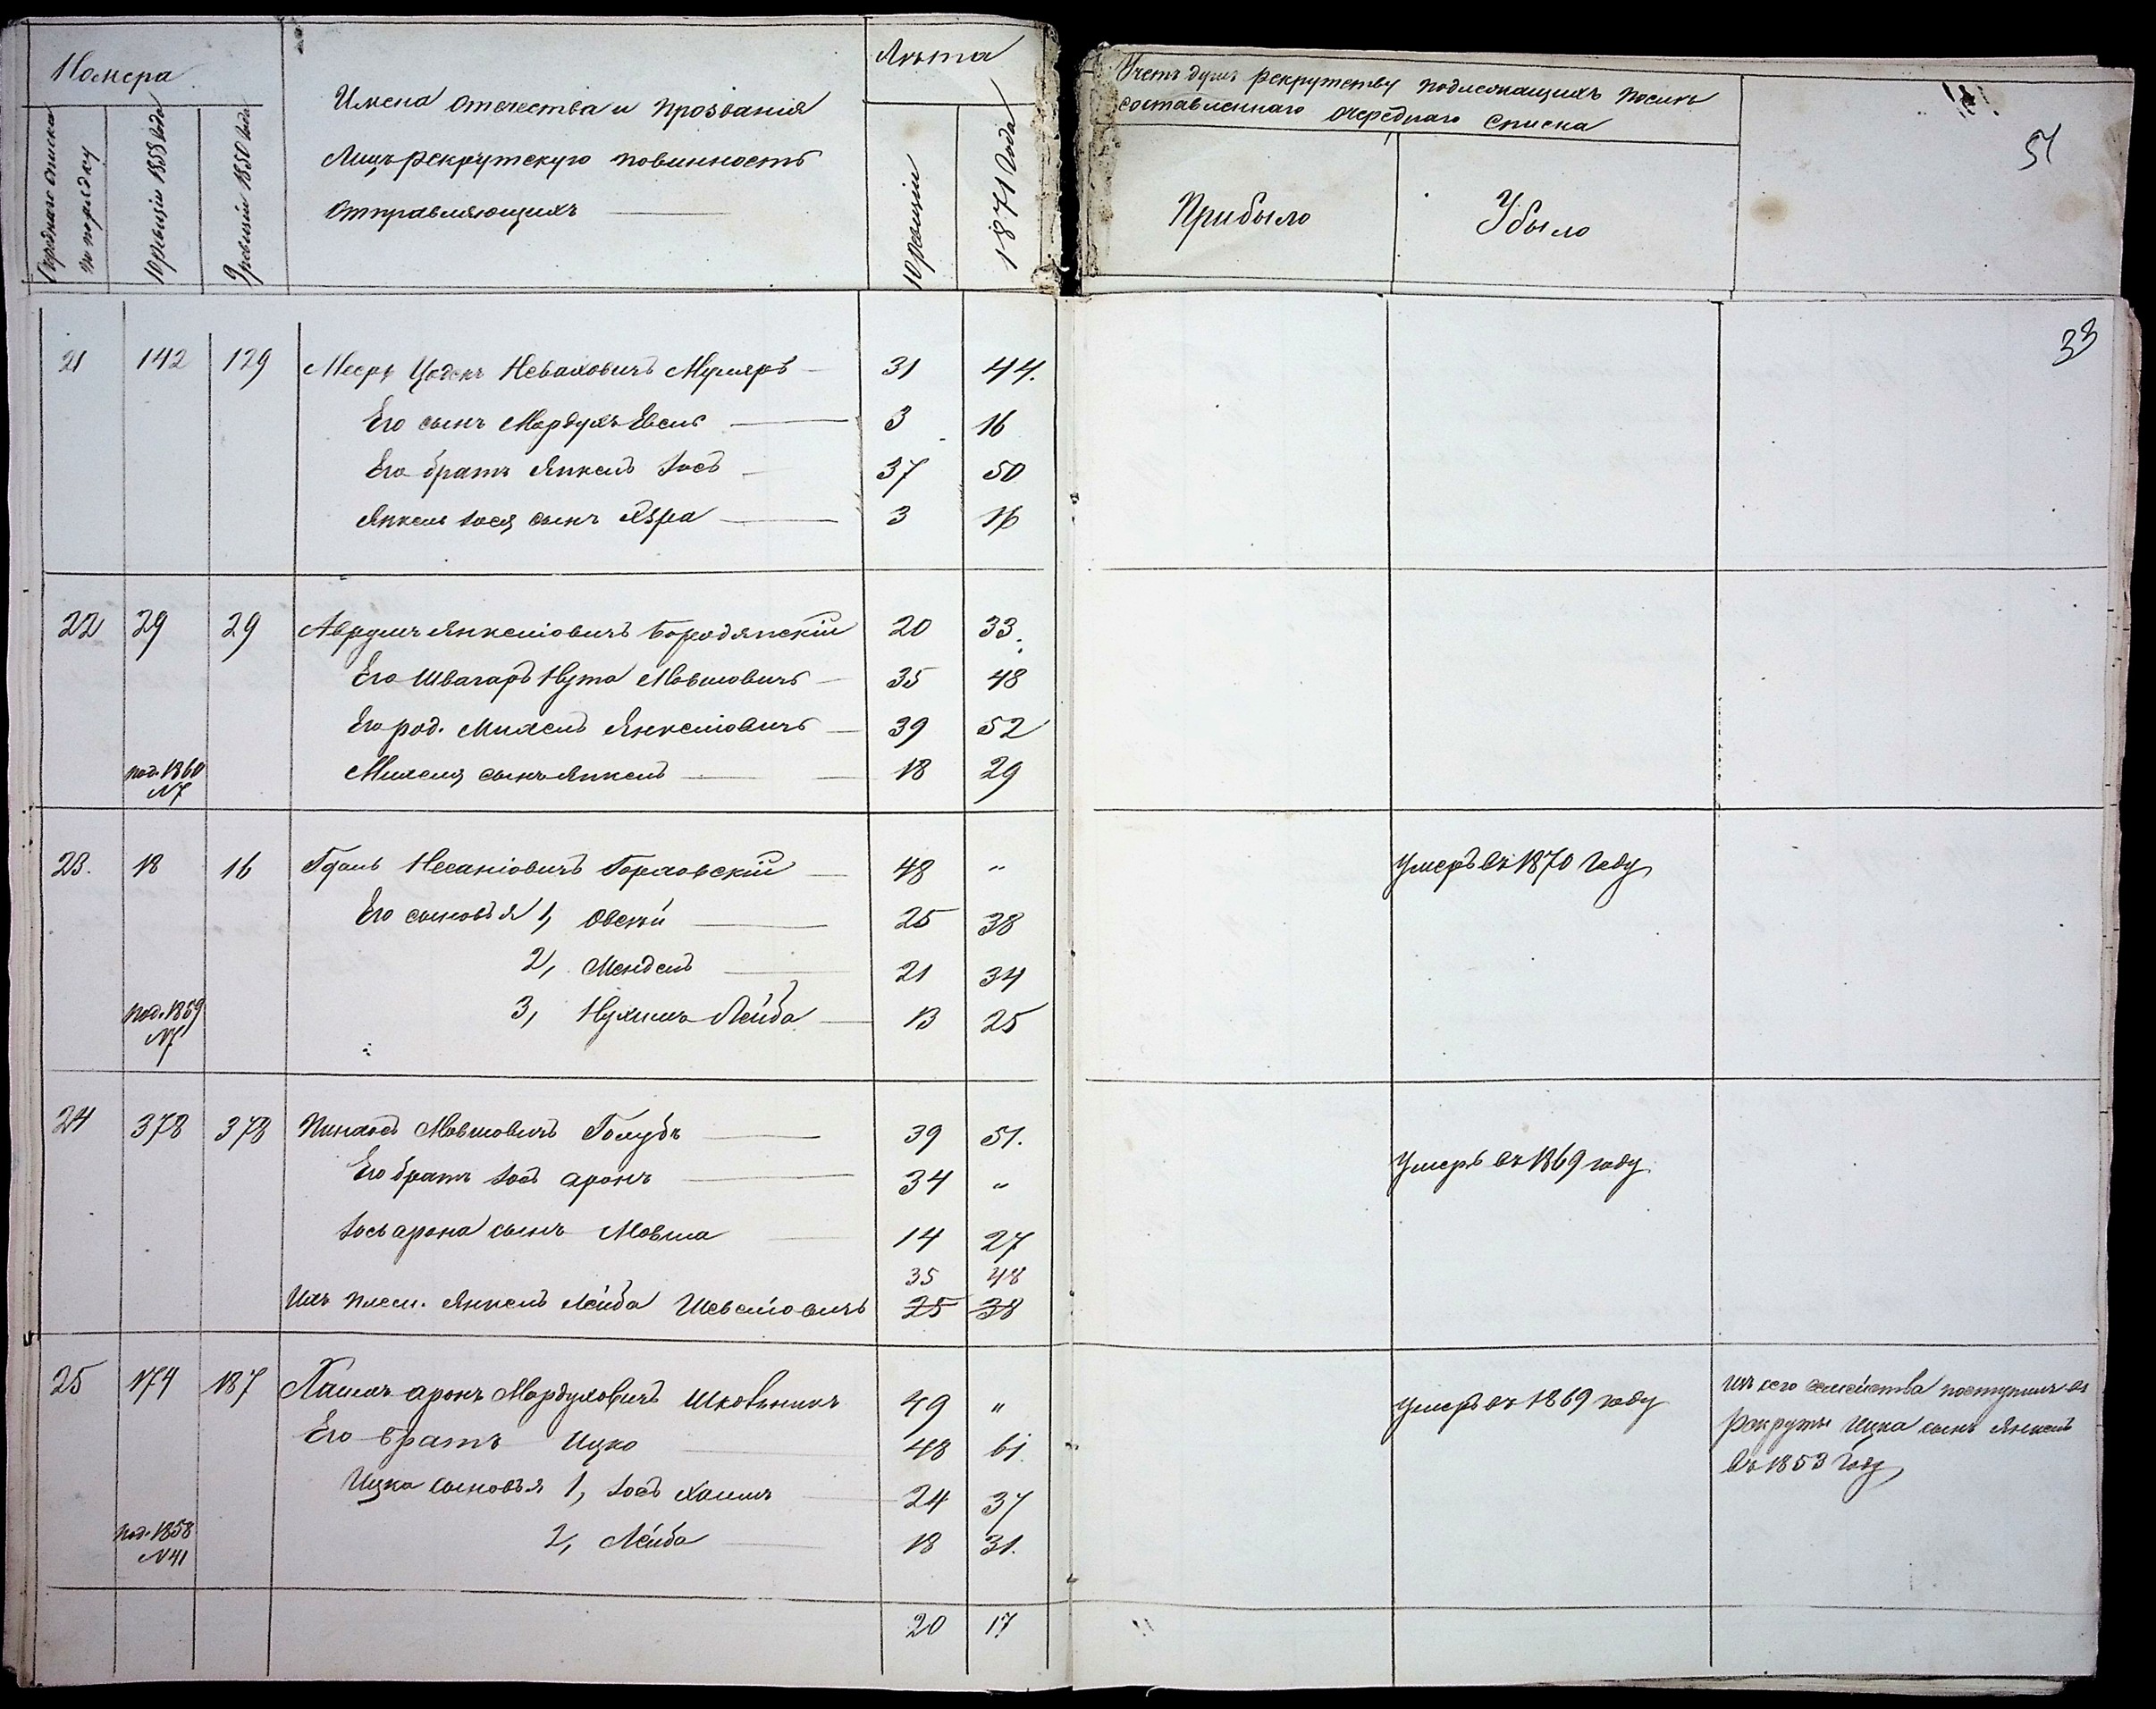 Номера
Очереднаго списка
по порядку
10 ревизіи 1858 года
9 ревизіи 1850 года
Имена отечества и прозванія
Лицъ рекрутскую повинность
отправляющихъ
Лѣта
10 ревизіи
1871 года
Счетъ душъ рекрутству подлежащихъ посемъ
составленнаго очереднаго списка
Прибыло
Убыло
51
33
21 142 129 Мееръ Неваховичъ Муляръ 31 44.
Его сынъ Мордухъ Евсей 3 16
Его братъ Янкель Іосъ 37 50
Янкель Іося сынъ 3 16
22 29 29 Аврумъ Янкеліовичъ Бородянскій 20 33.
Его Швагаръ Нута Мовшовичъ 35 48
Его род. Михель Янкеліовичъ 39 52
под. 1860 Михеля сынъ Янкель 18 29
N 7
23. 18 16 Несаніовичъ Горловскій 48 " Умеръ въ 1870 году
Его сыновья 1, Овсей 25 38
2, Мендель 21 34
под. 1859 3, Нухимъ Лейба 13 25
N 7
24 378 378 Пинхосъ Мовшовичъ Голубъ 39 51.
Его братъ Іосъ аронъ 34 " Умеръ въ 1869 году.
Іосъ арона сынъ Мовша 14 27
35 48
Ихъ плем. Янкель Лейба 25 38
25 174 187 Хаимъ аронъ Мордуховичъ Шковникъ 49 " Умеръ въ 1869 году
Его братъ Ицко 48 61.
Ицка сыновья 1, Іосъ Хаимъ 24 37
2, Лейба 18 31.
под. 1858
N 41
изъ сего семейства поступилъ въ
рекруты Ицка сынъ Янкель
въ 1853 году
20 17